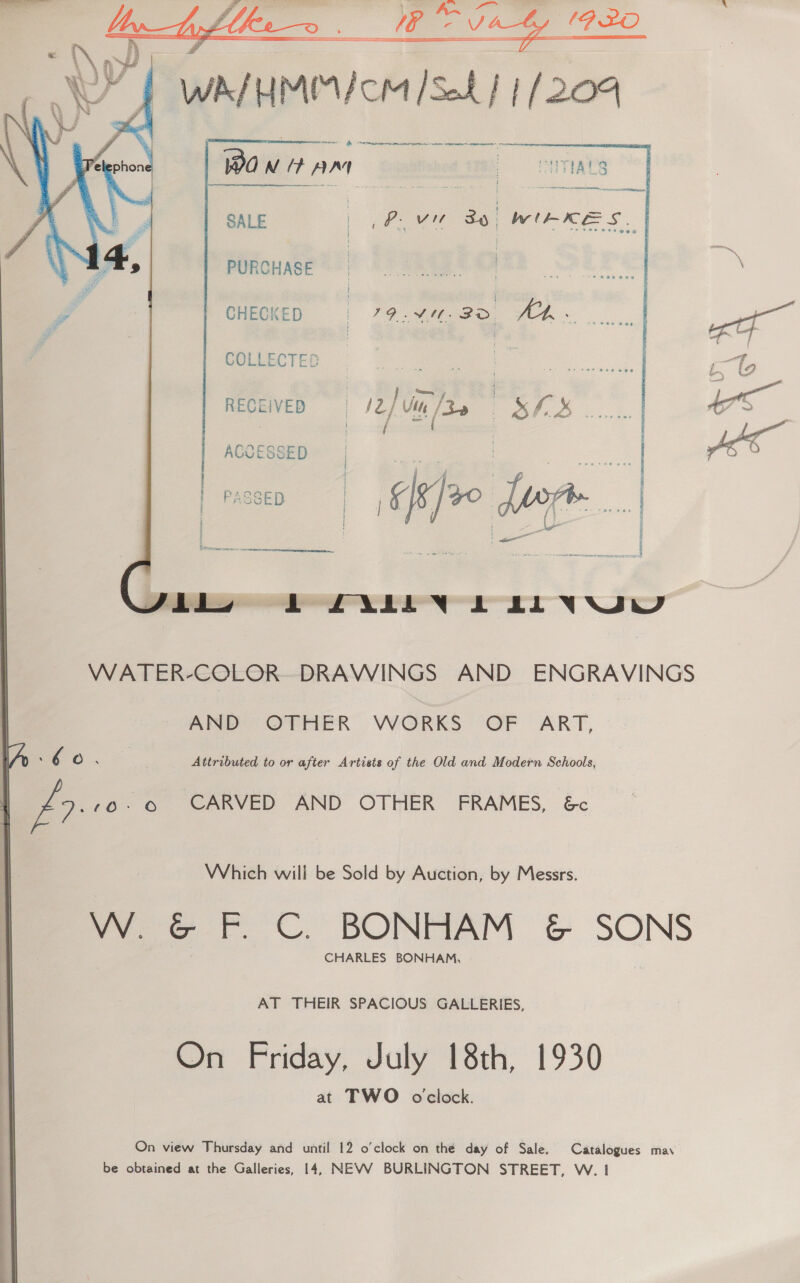 18th July 1930
WA/HMM/CM/Sal/1/209
Telephone
BONHAM INITIALS
SALE VII 30 WILKES.
14,
PURCHASE
CHECKED 19.VII.30
COLLECTED
56
RECEIVED 12/VIII/30
ACCESSED
PASSED 8/8/30
OIL PAINTINGS
WATER-COLOR DRAWINGS AND ENGRAVINGS
AND OTHER WORKS OF ART,
Attributed to or after Artists of the Old and Modern Schools,
£7.10.0 CARVED AND OTHER FRAMES, &c
Which will be Sold by Auction, by Messrs.
W. & F. C. BONHAM & SONS
CHARLES BONHAM.
AT THEIR SPACIOUS GALLERIES,
On Friday, July 18th, 1930
at TWO o'clock.
On view Thursday and until 12 o'clock on the day of Sale. Catalogues may
be obtained at the Galleries, 14, NEW BURLINGTON STREET, W. 1